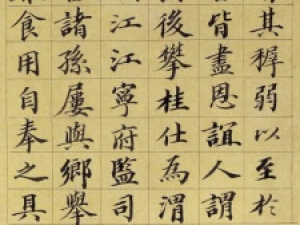 其穉弱以至於
皆盡恩誼人謂
後攀桂仕為渭
江江寧府監司
諸孫屢與鄉舉
食用自奉之具